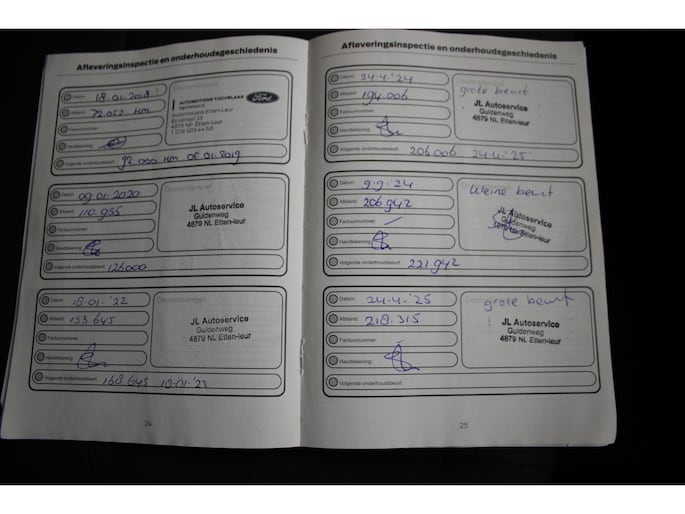 Afleveringsinspectie en onderhoudsgeschiedenis
Datum: 18.01.2018
Afstand: 72.052 km
AUTOMOTIONS TISCHELAAR
Ford
Automotions Etten-Leur
4879 NP Etten-Leur
Factuurnummer:
Handtekening:
Volgende onderhoudsbeurt: 92.000 km of 01.2019
Datum: 09-01-2020
Dealerstempel
Afstand: 110.955
JL Autoservice
Guldenweg
4879 NL Etten-leur
Factuurnummer:
Handtekening:
Volgende onderhoudsbeurt: 126000
Datum: 18.01.'22
Dealerstempel
Afstand: 153.645
JL Autoservice
Guldenweg
4879 NL Etten-leur
Factuurnummer:
Handtekening:
Volgende onderhoudsbeurt: 168.645 18-01-'23
24
Afleveringsinspectie en onderhoudsgeschiedenis
Datum: 24-4-'24
grote beurt
Afstand: 194.006
JL Autoservice
Guldenweg
4879 NL Etten-leur
Factuurnummer:
Handtekening:
Volgende onderhoudsbeurt: 206.006 24-4-'25
Datum: 9-9-'24
kleine beurt
Afstand: 206.942
JL Autoservice
Guldenweg
4879 NL Etten-leur
Factuurnummer:
Handtekening:
Volgende onderhoudsbeurt: 221.942
Datum: 24-4-'25
grote beurt
Afstand: 218.315
JL Autoservice
Guldenweg
4879 NL Etten-leur
Factuurnummer:
Handtekening:
Volgende onderhoudsbeurt:
25